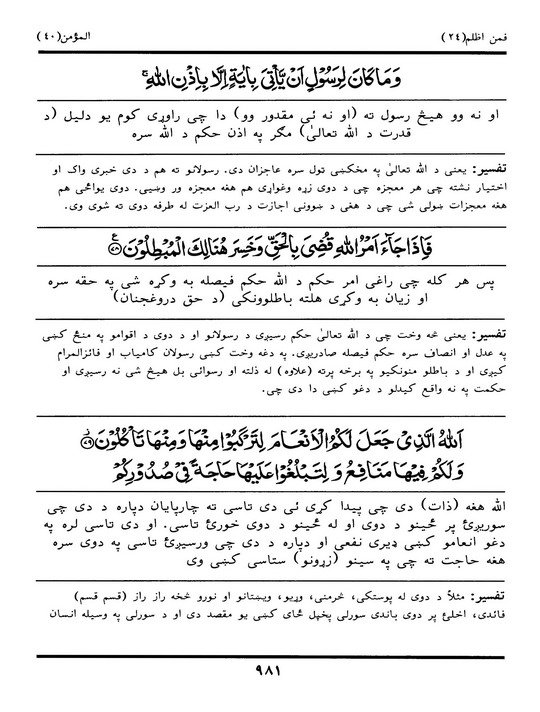 فمن اظلم(٢٤) المؤمن(٤٠)
وَمَا كَانَ لِرَسُوْلٍ اَنْ يَّاْتِىَ بِاٰيَةٍ اِلَّا بِاِذْنِ اللهِ ۚ
او نه وو هيڅ رسول ته (او نه ئې مقدور وو) دا چې راوړي کوم يو دليل (د
قدرت د الله تعالىٰ) مګر په اذن حکم د الله سره
تفسير: يعنى د الله تعالىٰ په مخکښې ټول سره عاجزان دى. رسولانو ته هم د دې خبرى واک او
اختيار نشته چې هر معجزه چې د دوى زړه وغواړى هم هغه معجزه ور وښيې. دوى يواځې هم
هغه معجزات ښولى شى چې د هغې د ښوونې اجازت د رب العزت له طرفه دوى ته شوى وى.
فَاِذَا جَآءَ اَمْرُ اللهِ قُضِىَ بِالْحَقِّ وَخَسِرَ هُنَالِكَ الْمُبْطِلُوْنَ ۧ۷۸
پس هر کله چې راغى امر حکم د الله حکم فيصله به وکړه شى په حقه سره
او زيان به وکړى هلته باطلوونکى (د حق دروغجنان)
تفسير: يعنى څه وخت چې د الله تعالىٰ حکم رسيږى د رسولانو او د دوى د اقوامو په منځ کښې
په عدل او انصاف سره حکم فيصله صادريږى. په دغه وخت کښې رسولان کامياب او فائزالمرام
کيږى او د باطلو منونکيو په برخه پرته (علاوه) له ذلته او رسوائى بل هيڅ شى نه رسيږى او
حکمت په نه واقع کيدلو د دغو کښې دا دى چې.
اَللهُ الَّذِىْ جَعَلَ لَكُمُ الْاَنْعَامَ لِتَرْكَبُوْا مِنْهَا وَمِنْهَا تَاْكُلُوْنَ ۷۹
وَلَكُمْ فِيْهَا مَنَافِعُ وَلِتَبْلُغُوْا عَلَيْهَا حَاجَةً فِىْ صُدُوْرِكُمْ
الله هغه (ذات) دى چې پيدا کړى ئى دى تاسې ته چارپايان دپاره د دې چې
سوريږئ پر ځينو د دوى او له ځينو د دوى خورئ تاسې. او دى تاسې لره په
دغو انعامو کښې ډيرى نفعى او دپاره د دې چې ورسيږئ تاسې په دوى سره
هغه حاجت ته چې په سينو (زړونو) ستاسې کښې وى
تفسير: مثلاً د دوى له پوستکي، څرمنې، وړيو، ويښتانو او نورو څخه راز راز (قسم قسم)
فائدې، اخلئ پر دوى باندى سورلى پخپل ځاى کښې يو مقصد دى او د سورلى په وسيله انسان
٩٨١